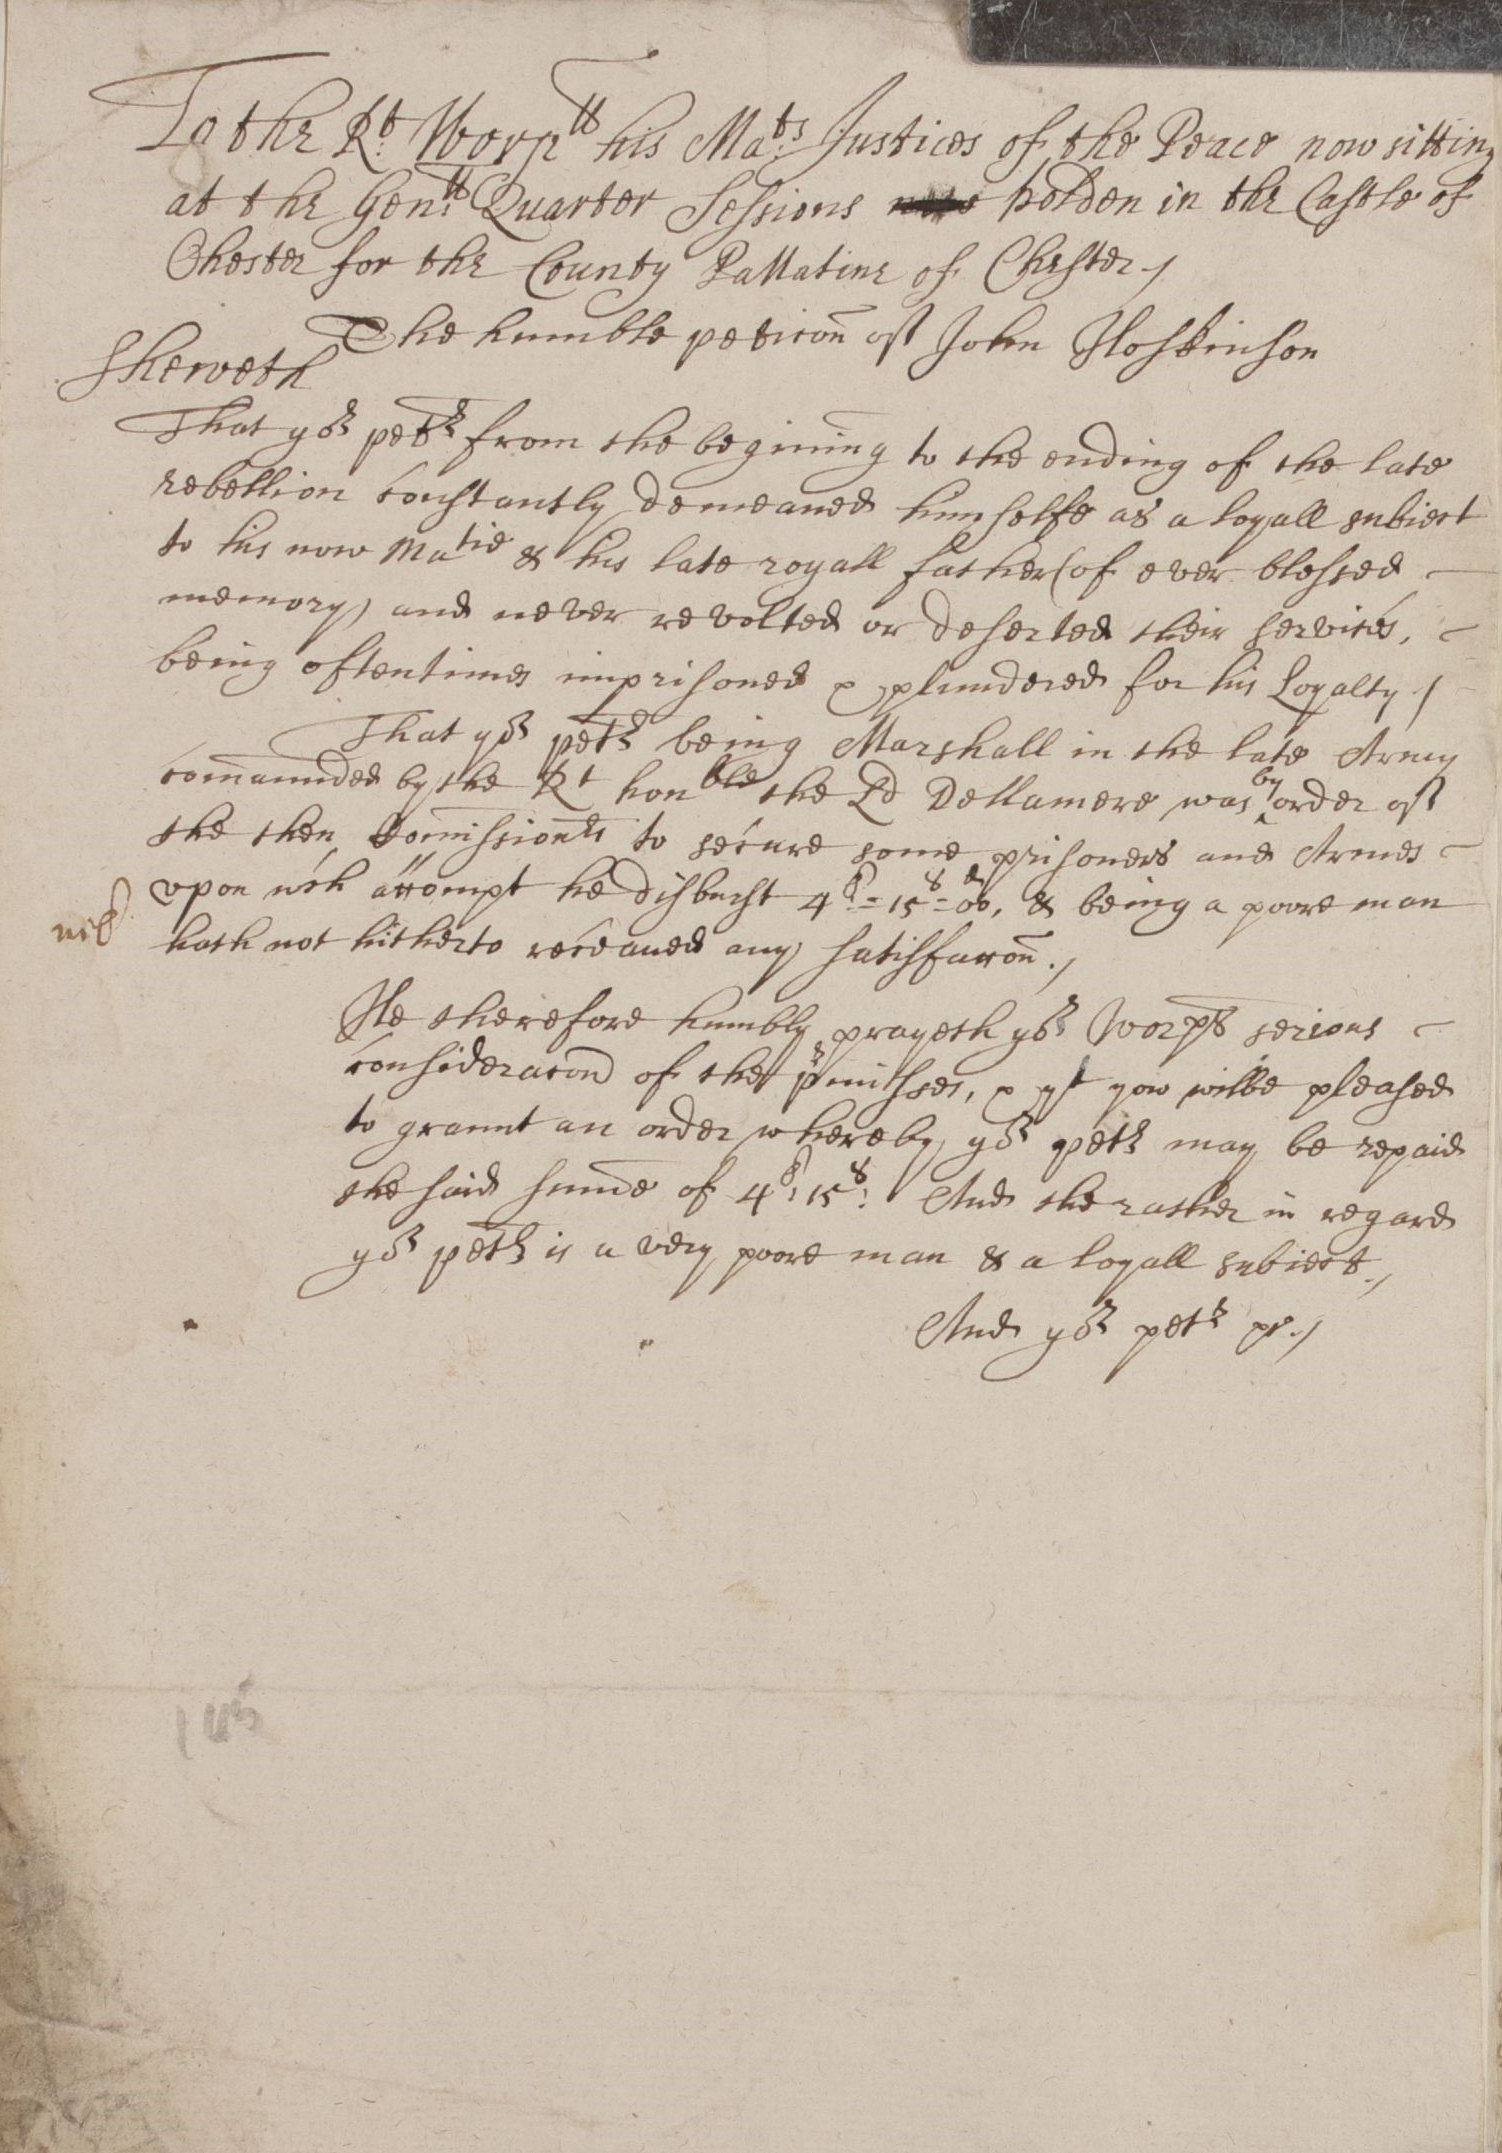 To the Rt. Worpll his Mats. Justices of the Peace now sitting
at the Genll. Quarter Sessions holden in the Castle of
Chester for the County Pallatine of Chester./
The humble peticon of John Hoskinson
Sheweth
That yor petr from the begining to the ending of the late
rebellion constantly demeaned himselfe as a loyall subiect
to his now Matie & his late royall father (of ever blessed
memory) and never revolted or deserted their services,
being oftentimes imprisoned & plundered for his Loyalty./
That yor petr being Marshall in the late Army
comaunded by the Rt honble the Ld Dellamere was by order of
the then Comissionrs to secure some prisoners and Armes
vpon wch attempt he disburst 4l:=15s=00d, & being a poore man
nil
hath not hitherto receaued any satisfaccon./
He therefore humbly prayeth yor Worpps serious
consideracon of the prmisses, & yt yow wilbe pleased
to graunt an order whereby yor petr may be repaid
the said summe of 4l: 15s: And the rather in regard
yor petr is a very poore man & a loyall subiect./
And yor petr pr./